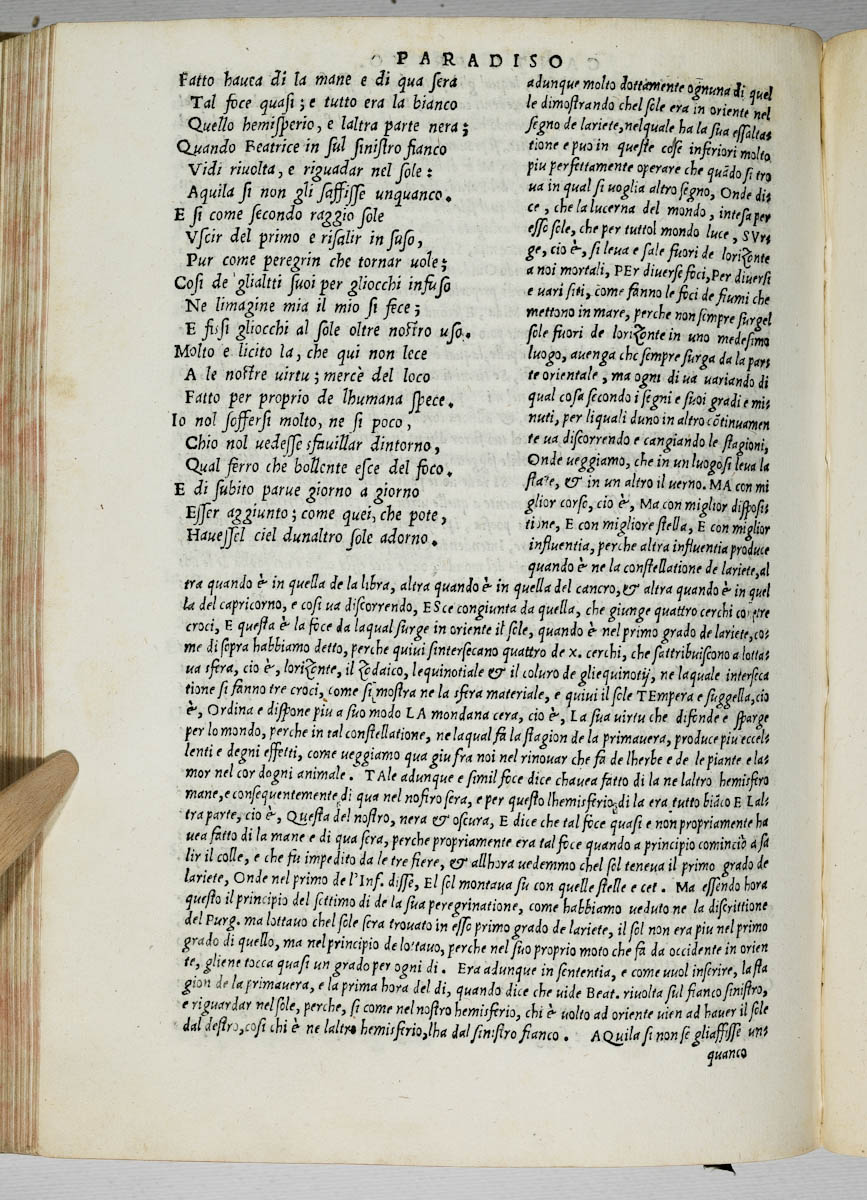 PARADISO
Fatto hauea di la mane e di qua sera
Tal foce quasi; e tutto era la bianco
Quello hemisperio, e laltra parte nera;
Quando Beatrice in sul sinistro fianco
Vidi riuolta, e riguadar nel sole:
Aquila si non gli saffisse unquanco.
E si come secondo raggio sole
Vscir del primo e risalir in suso,
Pur come peregrin che tornar uole;
Cosi de glialtti suoi per gliocchi infuso
Ne limagine mia il mio si fece;
E fissi gliocchi al sole oltre nostro uso.
Molto e licito la, che qui non lece
A le nostre uirtu; mercè del loco
Fatto per proprio de lhumana spece.
Io nol soffersi molto, ne si poco,
Chio nol uedesse sfauillar dintorno,
Qual ferro che bollente esce del foco.
E di subito parue giorno a giorno
Esser aggiunto; come quei, che pote,
Hauessel ciel dunaltro sole adorno.
adunque molto dottamente ognuna di quel
le dimostrando chel sole era in oriente nel
segno de lariete, nelquale ha la sua essalta=
tione e puo in queste cose inferiori molto
piu perfettamente operare che quãdo si tro
ua in qual si uoglia altro segno, Onde di=
ce, che la lucerna del mondo, intesa per
esso sole, che per tuttol mondo luce, SVr=
ge, cio è, si leua e sale fuori de lorizonte
a noi mortali, PEr diuerse foci, Per diuersi
e uari siti, come fanno le foci de fiumi che
mettono in mare, perche non sempre surgel
sole fuori de lorizonte in uno medesimo
luogo, auenga che sempre surga da la par=
te orientale, ma ogni di ua uariando di
qual cosa secondo i segni e suoi gradi e mi=
nuti, per liquali duno in altro cõtinuamen
te ua discorrendo e cangiando le stagioni,
Onde ueggiamo, che in un luogo si leua la
state, & in un altro il uerno. MA con mi
glior corso, cio è, Ma con miglior disposi=
tione, E con migliore stella, E con miglior
influentia, perche altra influentia produce
quando è ne la constellatione de lariete, al
tra quando è in quella de la libra, altra quando è in quella del cancro, & altra quando è in quel
la del capricorno, e cosi ua discorrendo, ESce congiunta da quella, che giunge quattro cerchi con tre
croci, E questa è la foce da laqual surge in oriente il sole, quando è nel primo grado de lariete, co=
me di sopra habbiamo detto, perche quiui sintersecano quattro de x. cerchi, che sattribuiscono a lotta=
ua sfera, cio è, lorizonte, il zodaico, lequinotiale & il coluro de gliequinotij, ne laquale interseca
tione si fanno tre croci, come si mostra ne la sfera materiale, e quiui il sole TEmpera e suggella, cio
è, Ordina e dispone piu a suo modo LA mondana cera, cio è, La sua uirtu che difonde e sparge
per lo mondo, perche in tal constellatione, ne laqual fa la stagion de la primauera, produce piu eccel=
lenti e degni effetti, come ueggiamo qua giu fra noi nel rinouar che fa de lherbe e de le piante e la=
mor nel cor dogni animale. TAle adunque e simil foce dice chauea fatto di la ne laltro hemisfero
mane, e consequentemente di qua nel nostro sera, e per questo lhemisferio di la era tutto biãco E Lal=
tra parte, cio è, Questa del nostro, nera & oscura, E dice che tal foce quasi e non propriamente ha
uea fatto di la mane e di qua sera, perche propriamente era tal foce quando a principio cominciò a sa
lir il colle, e che fu impedito da le tre fiere, & allhora uedemmo chel sol teneua il primo grado de
lariete, Onde nel primo de l'Inf. disse, El sol montaua su con quelle stelle e cet. Ma essendo hora
questo il principio del settimo di de la sua peregrinatione, come habbiamo ueduto ne la discrittione
del Purg. ma lottauo chel sole sera trouato in esso primo grado de lariete, il sol non era piu nel primo
grado di quello, ma nel principio de lottauo, perche nel suo proprio moto che fa da occidente in orien
te, gliene tocca quasi un grado per ogni di. Era adunque in sententia, e come uuol inferire, la sta
gion de la primauera, e la prima hora del di, quando dice che uide Beat. riuolta sul fianco sinistro,
e riguardar nel sole, perche, si come nel nostro hemisferio, chi è uolto ad oriente uien ad hauer il sole
dal destro, cosi chi è ne laltro hemisferio, lha dal sinistro fianco. AQuila si non se gliaffisse un=
quanco